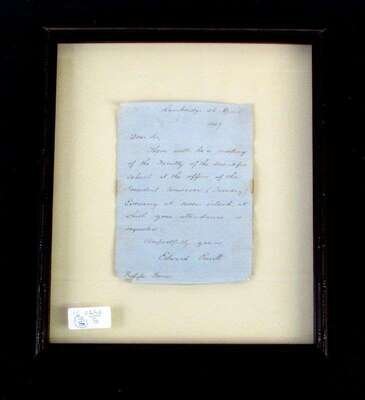 Cambridge 26
1849
Dear Sir,
There will be a meeting
of the Faculty of the Scientific
School at the office of the
President tomorrow (Tuesday)
Evening at seven o'clock at
which your attendance is
requested.
Respectfully yours,
Edward Everett